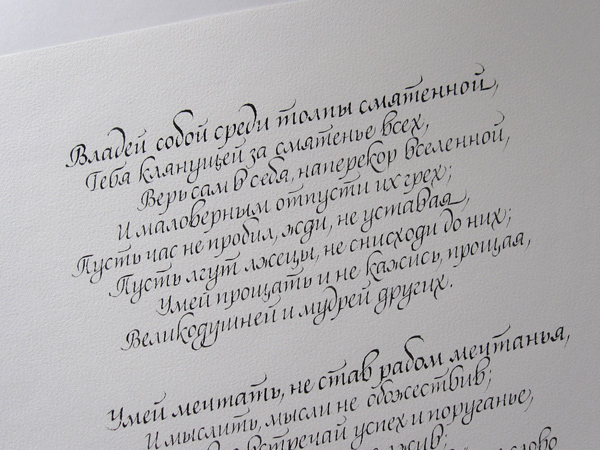 Владей собой среди толпы смятенной,
Тебя клянущей за смятенье всех,
Верь сам в себя, наперекор вселенной,
И маловерным отпусти их грех;
Пусть час не пробил, жди, не уставая,
Пусть лгут лжецы, не снисходи до них;
Умей прощать и не кажись, прощая,
Великодушней и мудрей других.
Умей мечтать, не став рабом мечтанья,
И мыслить, мысли не обожествив;
встречай успех и поруганье,
слово